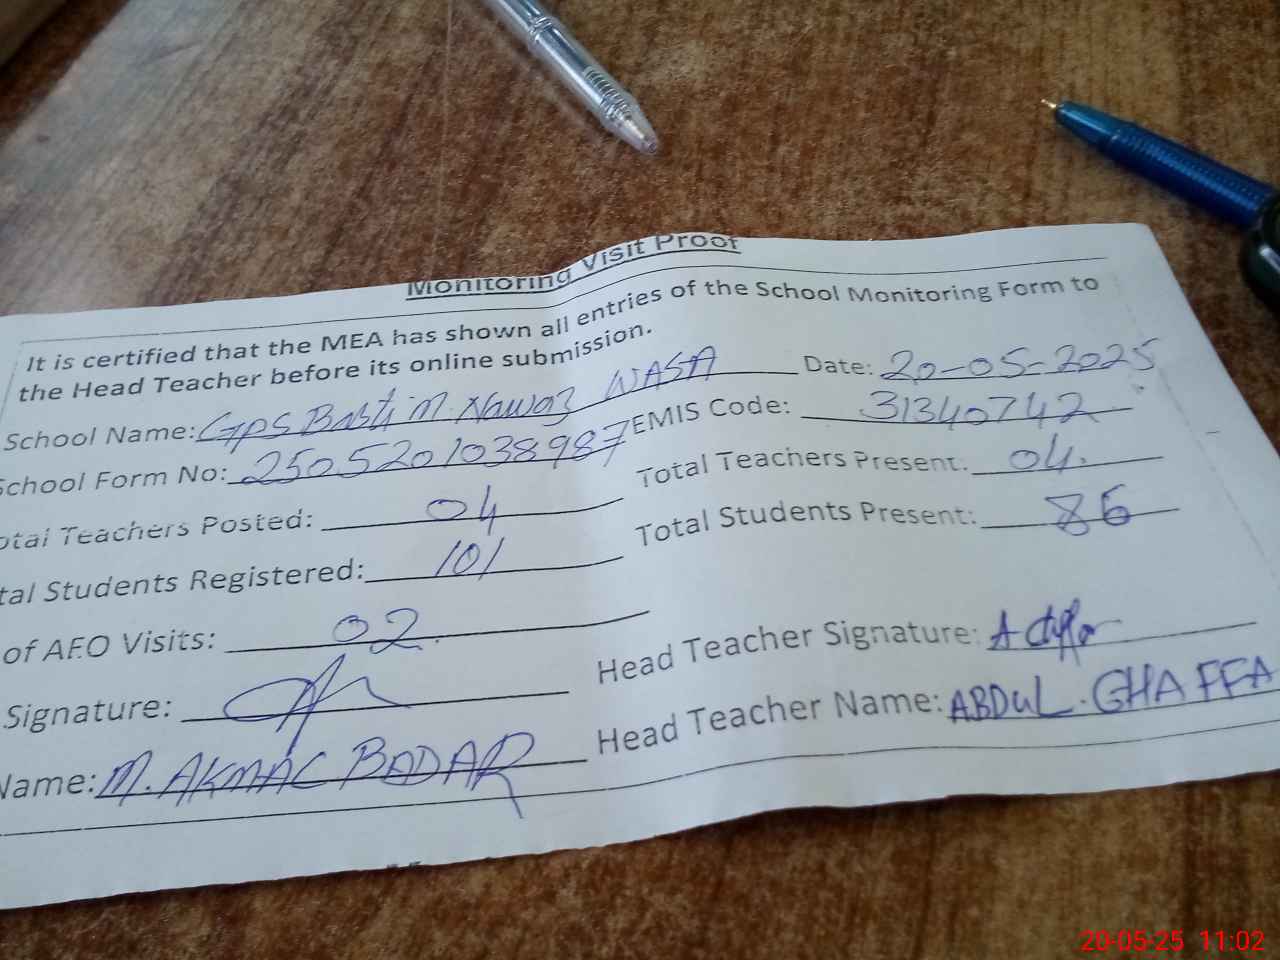 Monitoring Visit Proof
It is certified that the MEA has shown all entries of the School Monitoring Form to
the Head Teacher before its online submission.
School Name: GPS Basti M. Nawaz WASA Date: 20-05-2025
School Form No: 2505201038987 EMIS Code: 31340742
otal Teachers Posted: 04 Total Teachers Present: 04.
tal Students Registered: 101 Total Students Present: 86
of AEO Visits: 02.
Signature: Head Teacher Signature:
Name: M. AKMAL BADAR Head Teacher Name: ABDUL. GHAFFA
20-05-25 11:02